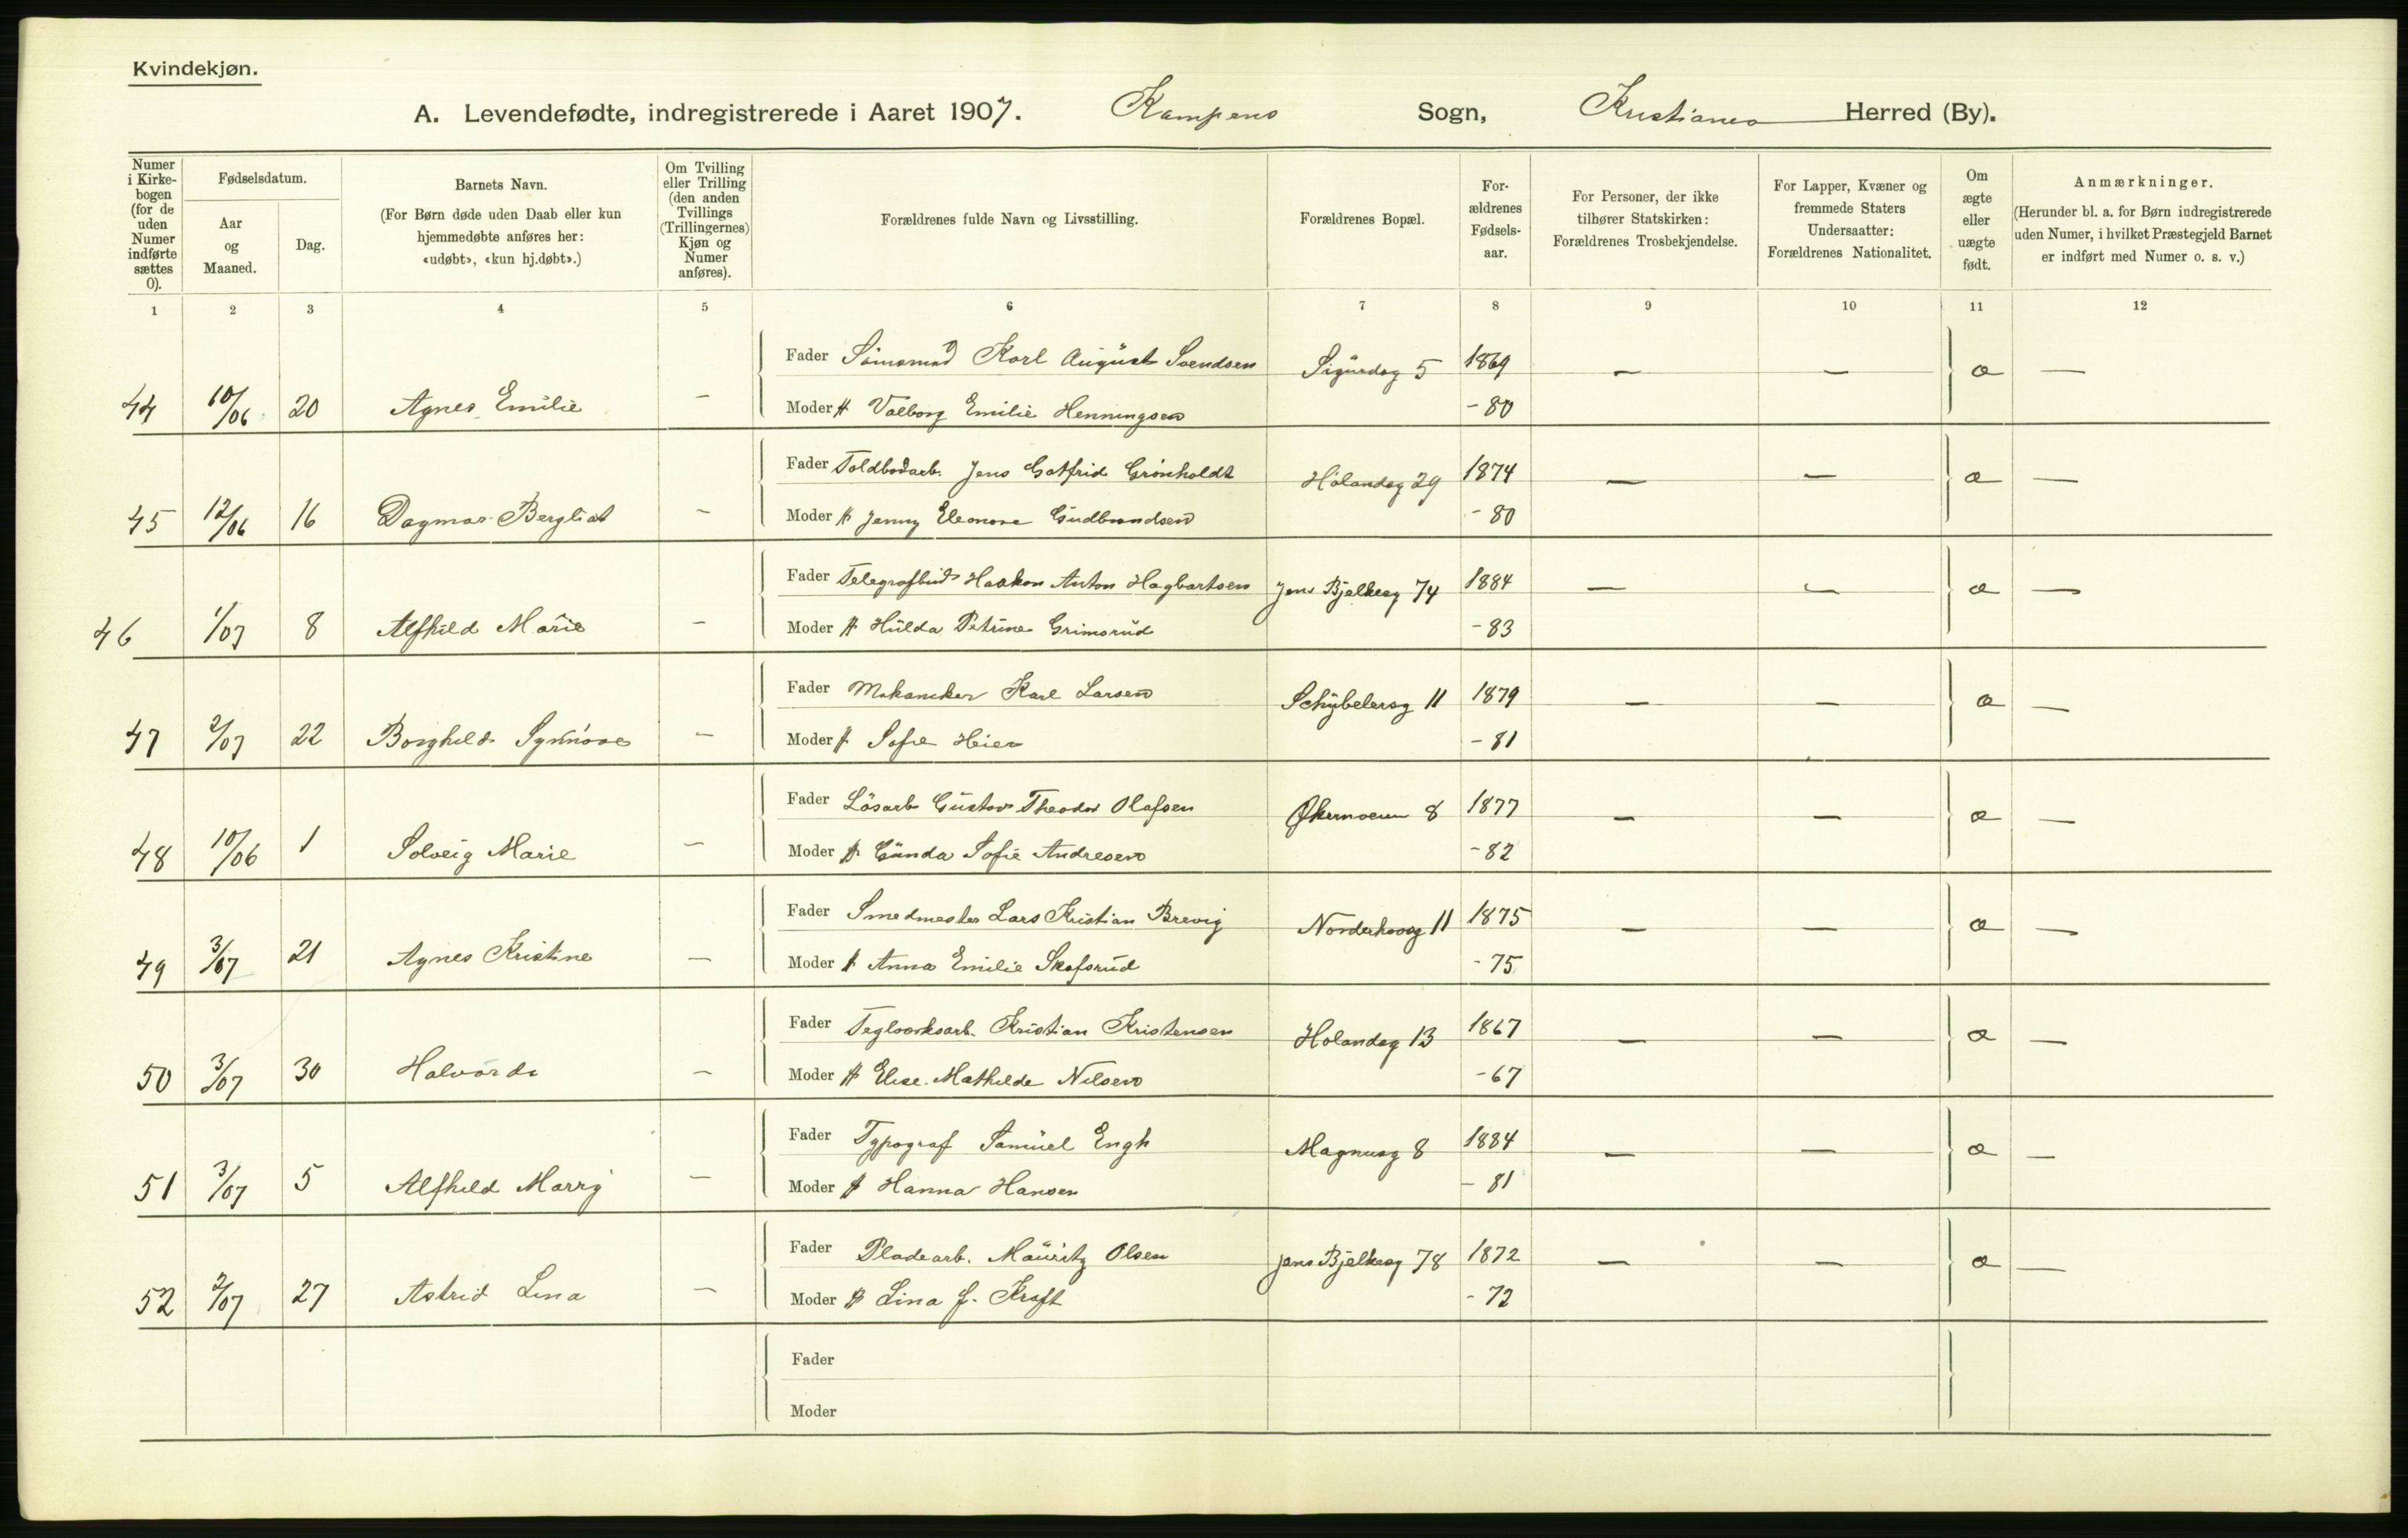 Kvindekjøn.
A. Levendefødte, indregistrerede i Aaret 1907. Kampens Sogn, Kristiania Herred (By).
Numer i Kirkebogen (for de uden Numer indførte sættes 0).
Fødselsdatum.
Aar og Maaned.
Dag.
Barnets Navn.
(For Børn døde uden Daab eller kun hjemmedøbte anføres her: «udøbt», «kun hj.døbt».)
Om Tvilling eller Trilling (den anden Tvillings (Trillingernes) Kjøn og Numer anføres).
Forældrenes fulde Navn og Livsstilling.
Forældrenes Bopæl.
Forældrenes Fødselsaar.
For Personer, der ikke tilhører Statskirken: Forældrenes Trosbekjendelse.
For Lapper, Kvæner og fremmede Staters Undersaatter: Forældrenes Nationalitet.
Om ægte eller uægte født.
Anmærkninger.
(Herunder bl. a. for Børn indregistrerede uden Numer, i hvilket Præstegjeld Barnet er indført med Numer o. s. v.)
1 2 3 4 5 6 7 8 9 10 11 12
Fader Sömsmed Karl August Svendsen Sigurdsg 5 1869 — — æ —
44 10/06 20 Agnes Emilie — Moder H Valborg Emilie Henningsen - 80
Fader Toldbodarb. Jens Gotfrid Grönholdt Hölandsg 29 1874 — — æ —
45 12/06 16 Dagmar Bergliot — Moder H Jenny Eleonore Gudbrandsen - 80
Fader Telegrafbud Haakon Anton Hagbartsen Jens Bjelkesg 74 1884 — — æ —
46 1/07 8 Alfhild Marie — Moder H Hulda Petrine Grimsrud - 83
Fader Mekaniker Karl Larsen Schübelersg 11 1879 — — æ —
47 2/07 22 Borghild Synnöve — Moder H Sofie Heier - 81
Fader Lösarb Gustav Theodor Olafsen Økernveien 8 1877 — — æ —
48 10/06 1 Solveig Marie — Moder H Gunda Sofie Andresen - 82
Fader Smedmester Lars Kristian Brevig Norderhovsg 11 1875 — — æ —
49 3/07 21 Agnes Kristine — Moder H Anna Emilie Skofsrud - 75
Fader Teglværksarb. Kristian Kristensen Hölandsg 13 1867 — — æ —
50 3/07 30 Halvarda — Moder H Elise Mathilde Nilsen - 67
Fader Typograf Samuel Engh Magnusg 8 1884 — — æ —
51 3/07 5 Alfhild Marry — Moder H Hanna Hansen - 81
Fader Pladearb. Mauritz Olsen Jens Bjelkesg 78 1872 — — æ —
52 2/07 27 Astrid Lina — Moder H Lina f. Kraft - 72
Fader
Moder